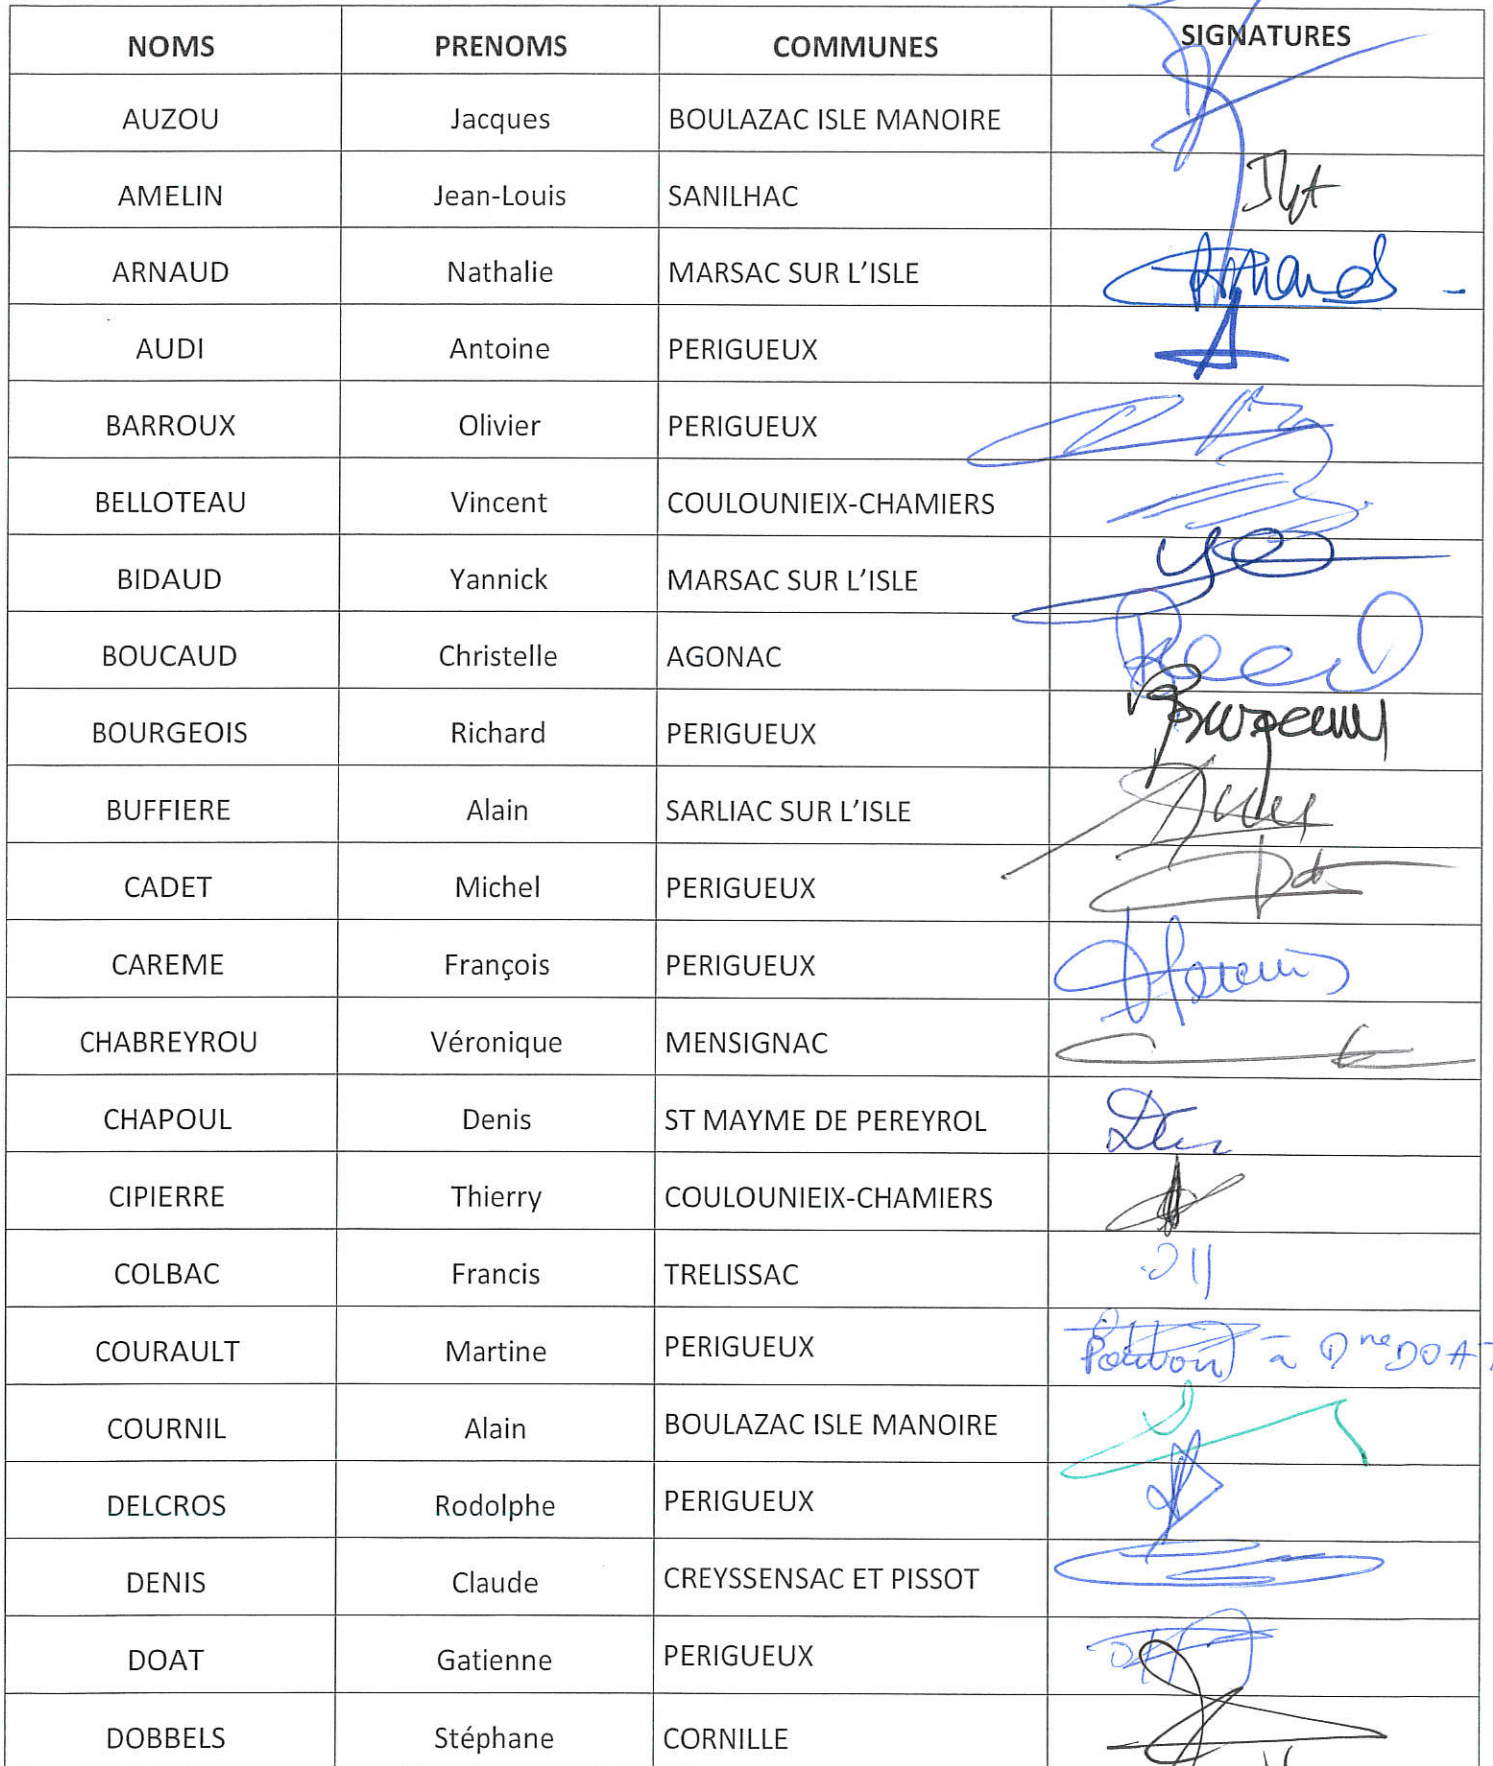 NOMS PRENOMS COMMUNES SIGNATURES
AUZOU Jacques BOULAZAC ISLE MANOIRE
AMELIN Jean-Louis SANILHAC
ARNAUD Nathalie MARSAC SUR L'ISLE Arnaud
AUDI Antoine PERIGUEUX
BARROUX Olivier PERIGUEUX
BELLOTEAU Vincent COULOUNIEIX-CHAMIERS
BIDAUD Yannick MARSAC SUR L'ISLE
BOUCAUD Christelle AGONAC
BOURGEOIS Richard PERIGUEUX
BUFFIERE Alain SARLIAC SUR L'ISLE
CADET Michel PERIGUEUX
CAREME François PERIGUEUX
CHABREYROU Véronique MENSIGNAC
CHAPOUL Denis ST MAYME DE PEREYROL
CIPIERRE Thierry COULOUNIEIX-CHAMIERS
COLBAC Francis TRELISSAC
COURAULT Martine PERIGUEUX Pouvoir à Mme DOAT
COURNIL Alain BOULAZAC ISLE MANOIRE
DELCROS Rodolphe PERIGUEUX
DENIS Claude CREYSSENSAC ET PISSOT
DOAT Gatienne PERIGUEUX
DOBBELS Stéphane CORNILLE